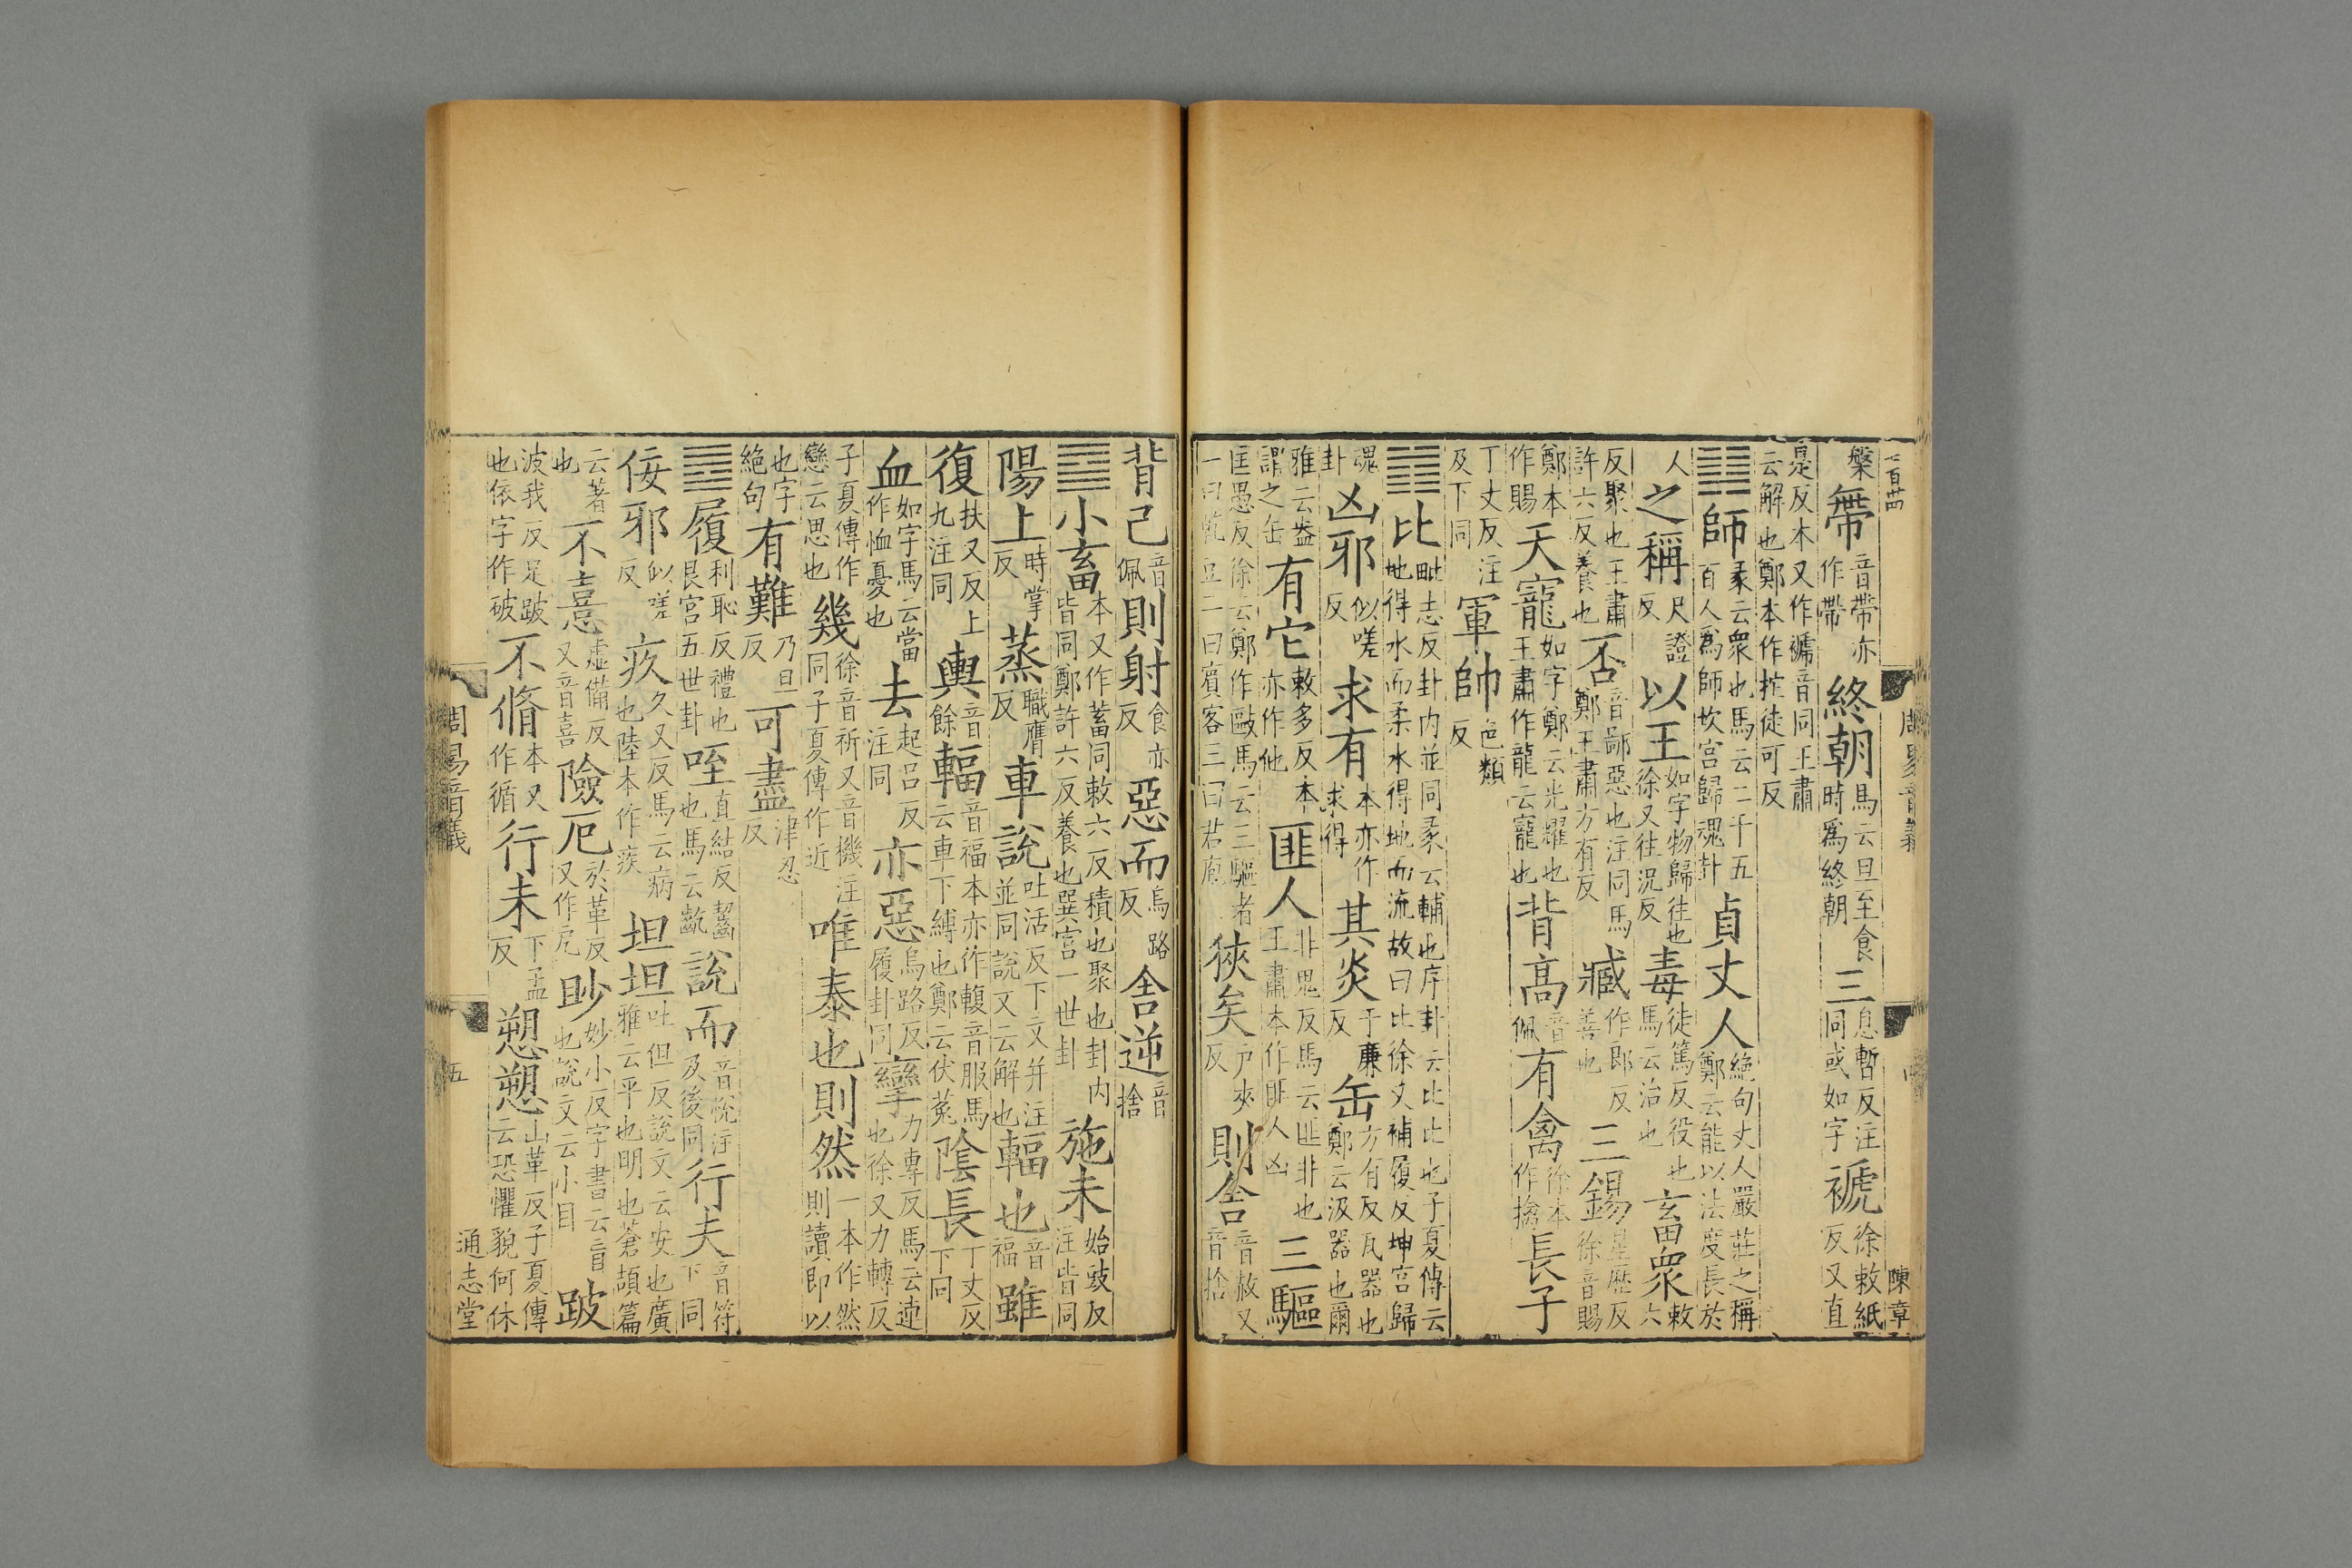 槃帶音帶亦作帶終朝馬云旦至食時爲終朝三息暫反注同或如字褫徐敕紙反又直
是反本又作褫音同王肅云解也鄭本作拕徒可反
䷆師彖云衆也馬云二千五百人爲師坎宮歸魂卦貞丈人絶句丈人嚴莊之稱鄭云能以法度長於
人之稱尺證反以王如字物歸往也徐又往況反毒徒篤反役也馬云治也畜衆敕六
反聚也王肅許六反養也否音鄙惡也注同馬鄭王肅方有反臧作郎反善也三錫星歷反徐音賜
鄭本作賜天寵如字鄭云光耀也王肅作龍云寵也背高音佩有禽徐本作擒長子
丁丈反注及下同軍帥色類反
䷇比毗志反卦内並同彖云輔也序卦云比比也子夏傳云地得水而柔水得地而流故曰比徐又補履反坤宮歸
魂卦凶邪似嗟反求有本亦作求得其炎于廉反缶方有反瓦器也鄭云汲器也爾
雅云盎謂之缶有它敕多反本亦作他匪人非鬼反馬云匪非也王肅本作匪人凶三驅
匡愚反徐云鄭作敺馬云三驅者一曰乾豆二曰賓客三曰君庖狹矣戸夾反則舍音赦又音捨
背己音佩則射食亦反惡而烏路反舍逆音捨
䷈小畜本又作蓄同敕六反積也聚也卦内皆同鄭許六反養也巽宮一世卦施未始豉反注皆同
陽上時掌反蒸職膺反車說吐活反下文并注並同說文云解也輻也音福雖
復扶又反上九注同輿音餘輻音福本亦作輹音服馬云車下縛也鄭云伏菟陰長丁丈反下同
血如字馬云當作恤憂也去起呂反注同亦惡烏路反履卦同攣力專反馬云連也徐又力轉反
子夏傳作戀云思也幾徐音祈又音機注同子夏傳作近唯泰也則然一本作然則讀即以
也字絶句有難乃旦反可盡津忍反
䷉履利恥反禮也艮宮五世卦咥直結反齧也馬云齕說而音悅注及後同行夫音符下同
佞邪似嗟反疚久又反馬云病也陸本作疾坦坦吐但反說文云安也廣雅云平也明也蒼頡篇
云著也不憙虛備反又音喜險厄於革反又作戹眇妙小反字書云盲也說文云小目跛
波我反足跛也依字作破不脩本又作循行未下孟反愬愬山革反子夏傳云恐懼貌何休
陳章
周易音義
周易音義
五
通志堂